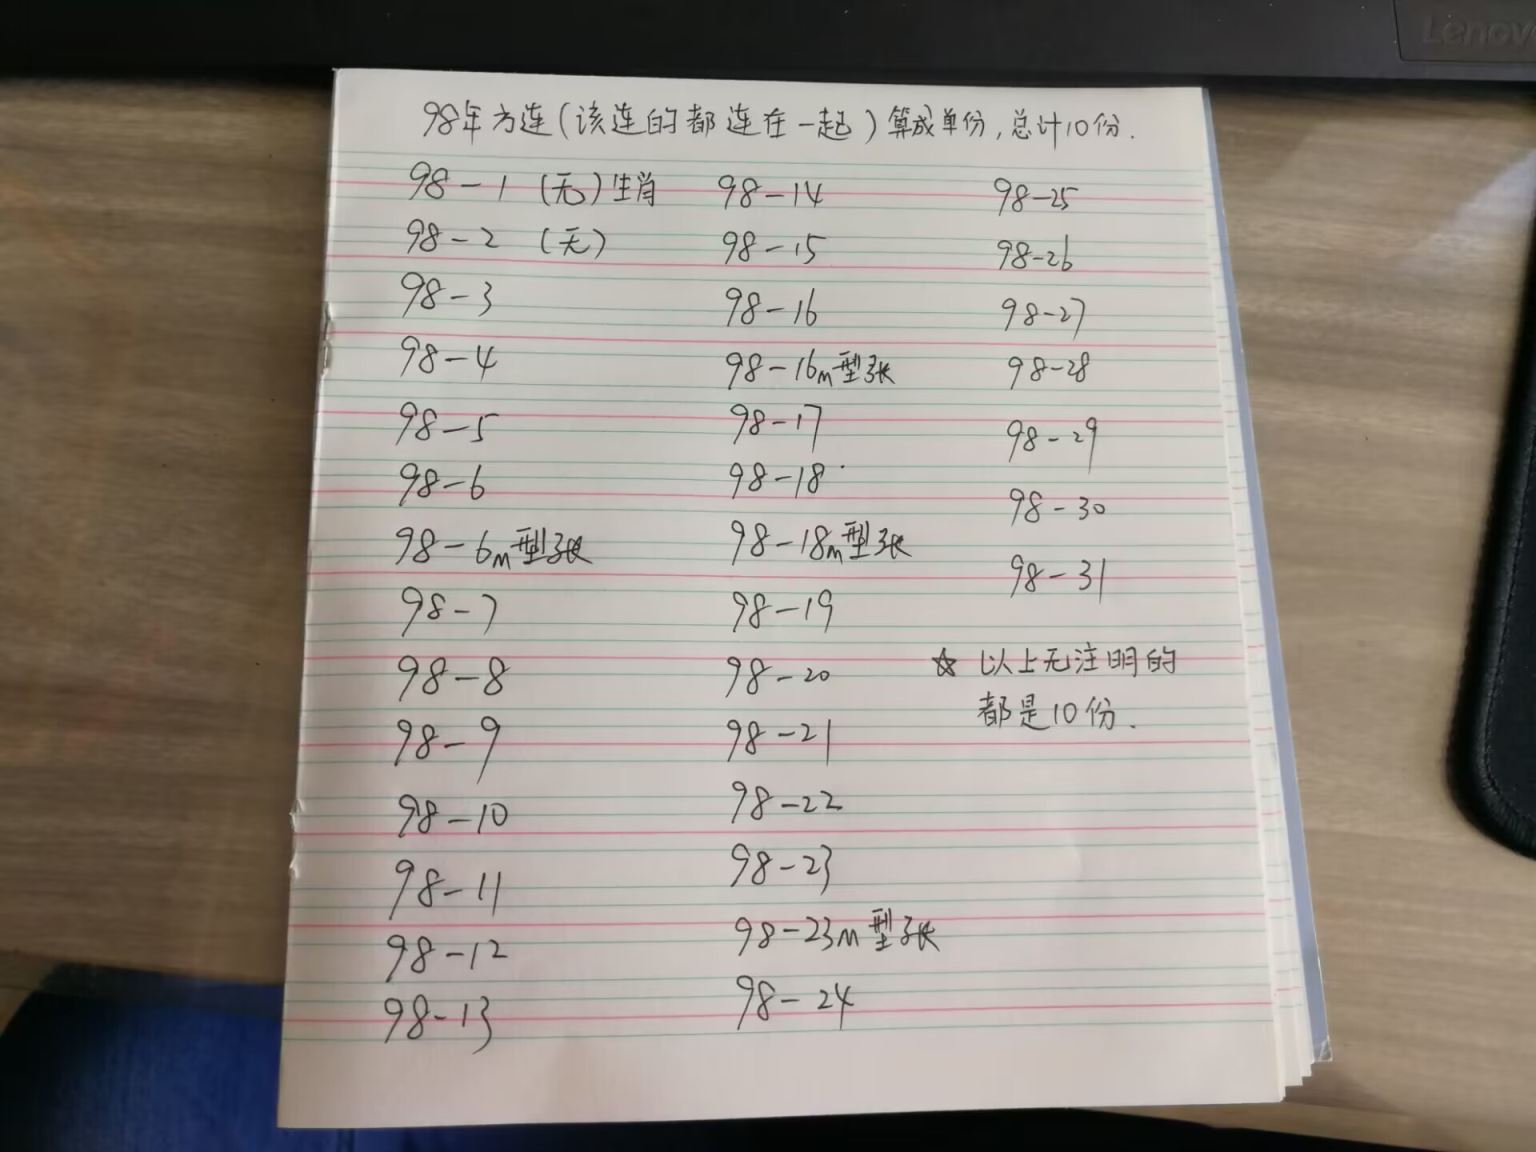 Lenovo
98年方连(该连的都连在一起)算成单份,总计10份.
98-1 (无)生肖
98-2 (无)
98-3
98-4
98-5
98-6
98-6m型张
98-7
98-8
98-9
98-10
98-11
98-12
98-13
98-14
98-15
98-16
98-16m型张
98-17
98-18
98-18m型张
98-19
98-20
98-21
98-22
98-23
98-23m型张
98-24
98-25
98-26
98-27
98-28
98-29
98-30
98-31
☆ 以上无注明的
都是10份.